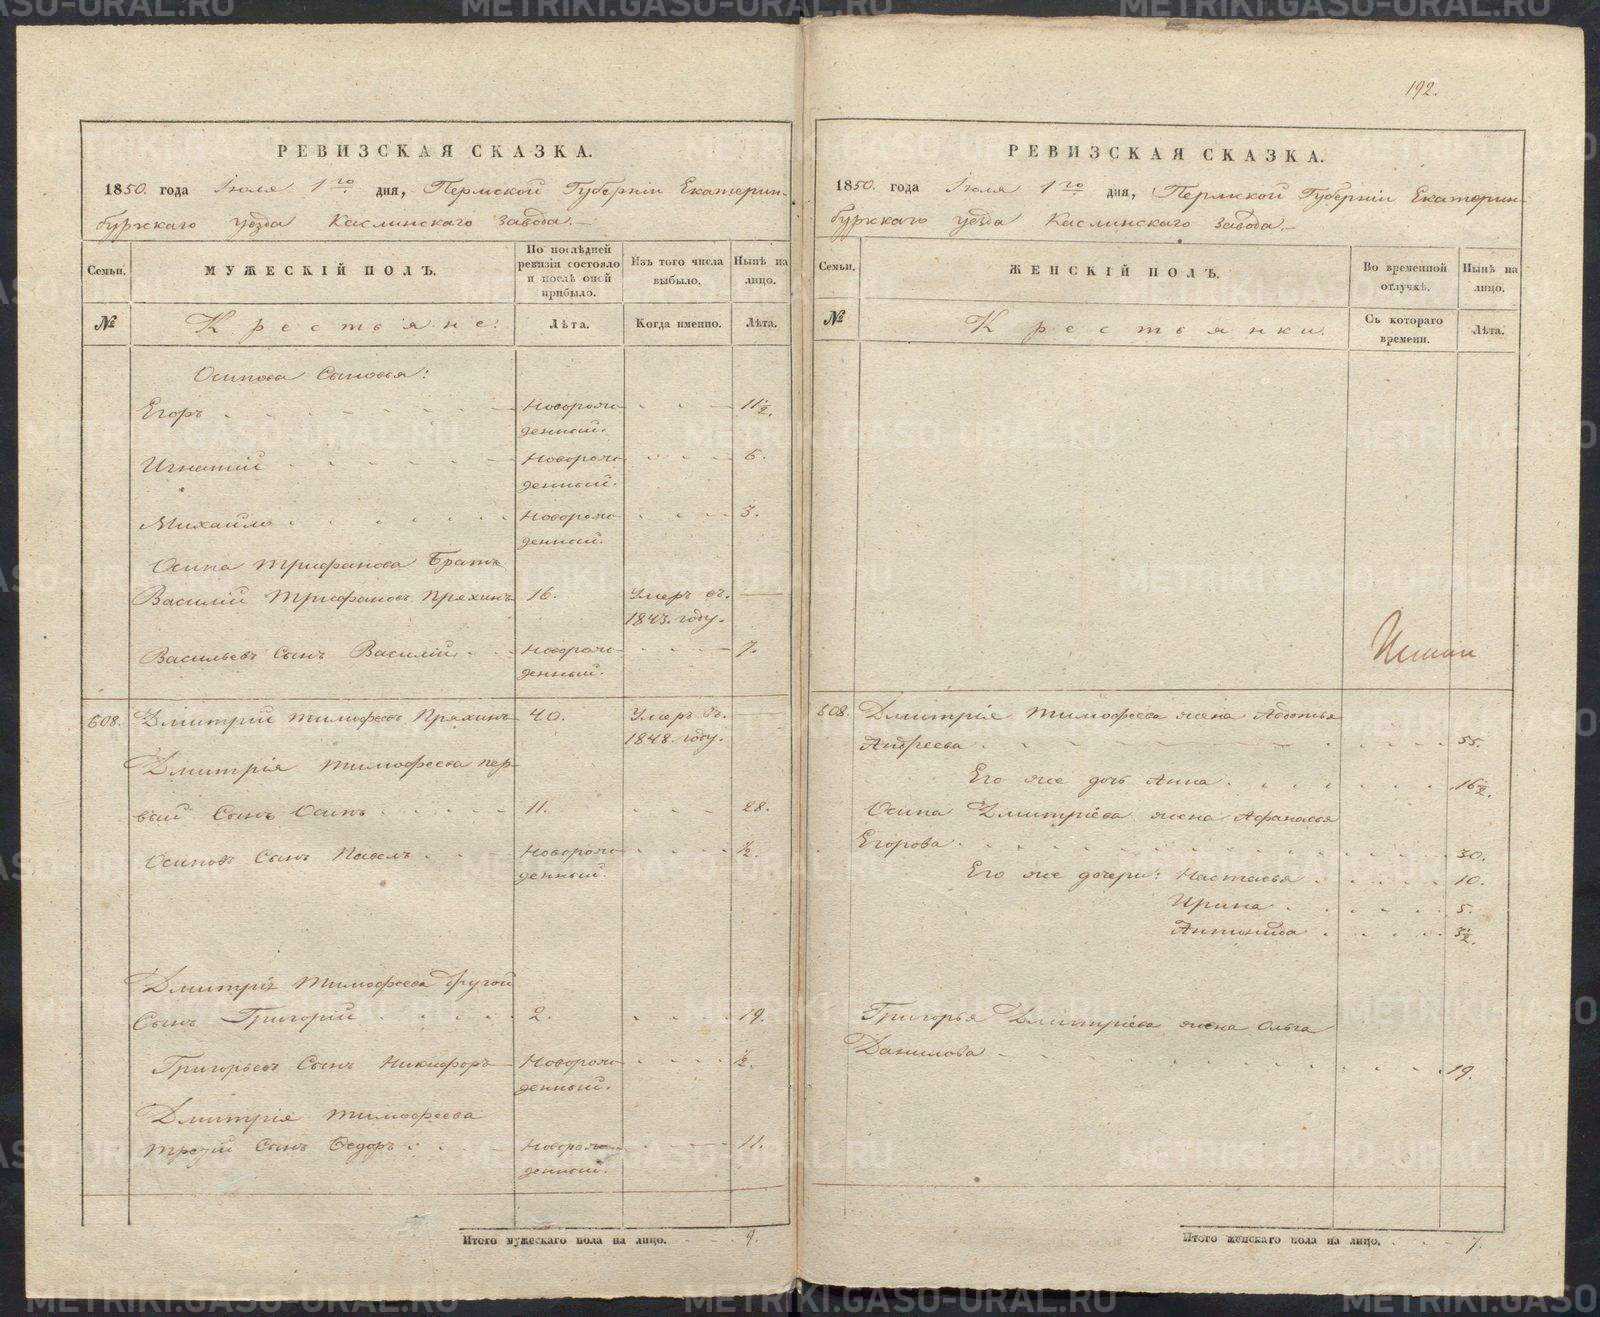 192.
РЕВИЗСКАЯ СКАЗКА.
1850. года Іюля 1го дня, Пермской Губерніи Екатерин-
бургскаго уезда Каслинскаго завода.
Семьи.
МУЖЕСКІЙ ПОЛЪ.
По послѣдней ревизіи состояло и послѣ оной прибыло.
Изъ того числа выбыло.
Нынѣ на лицо.
№
Крестьяне:
Лѣта.
Когда именно.
Лѣта.
Осипова Сыновья:
Егоръ Новорож- 11½.
денный.
Игнатій Новорож- 6.
денный.
Михайло Новорож- 3.
денный.
Осипа Трифанова Братъ
Василій Трифановъ Пряхинъ 16. Умеръ въ
1843. году.
Васильевъ Сынъ Василій Новорож- 7.
денный.
608. Дмитрій Тимофеевъ Пряхинъ 40. Умеръ въ
1848. году.
Дмитрія Тимофеева пер-
вый Сынъ Осипъ 11. 28.
Осиповъ Сынъ Павелъ Новорож- ½.
денный.
Дмитрія Тимофеева другой
Сынъ Григорій 2. 19.
Григорьевъ Сынъ Никифоръ Новорож- ½.
денный.
Дмитрія Тимофеева
третій Сынъ Федоръ Новорож- 11.
денный.
Итого мужескаго пола на лицо. 9.
РЕВИЗСКАЯ СКАЗКА.
1850. года Іюля 1го дня, Пермской Губерніи Екатерин-
бургскаго уезда Каслинскаго завода.
Семьи.
ЖЕНСКІЙ ПОЛЪ.
Во временной отлучкѣ.
Нынѣ на лицо.
№
Крестьянки.
Съ котораго времени.
Лѣта.
608. Дмитрія Тимофеева жена Авдотья
Андреева 55.
Его же дочь Анна 16½.
Осипа Дмитріева жена Афанасья
Егорова 30.
Его же дочери: Настасья 10.
Ирина 5.
Антонида 3½.
Григорья Дмитріева жена Ольга
Данилова 19.
Итого женскаго пола на лицо. 7.
METRIKI.GASO-URAL.RU